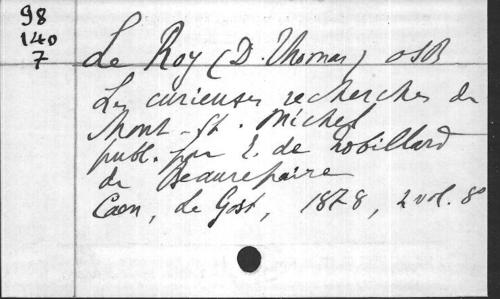 98
140
7
Le Roy (D. Thomas) OSB
Les curieuses recherches du
Mont-St. Michel
publ. par E. de Robillard
de Beaurepaire
Caen, Le Gost, 1878, 2 vol. 8°